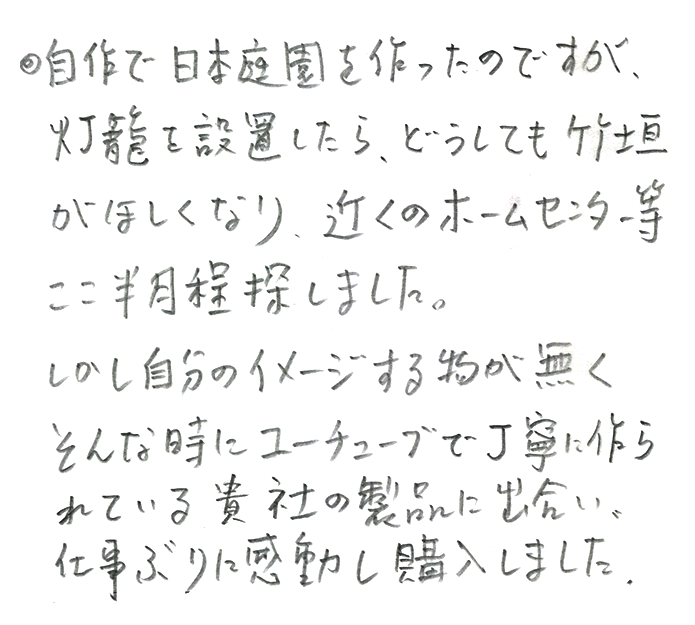 ◎自作で日本庭園を作ったのですが、
灯籠を設置したら、どうしても竹垣
がほしくなり、近くのホームセンター等
ここ半月程探しました。
しかし自分のイメージする物が無く
そんな時にユーチューブで丁寧に作ら
れている貴社の製品に出合い、
仕事ぶりに感動し購入しました.